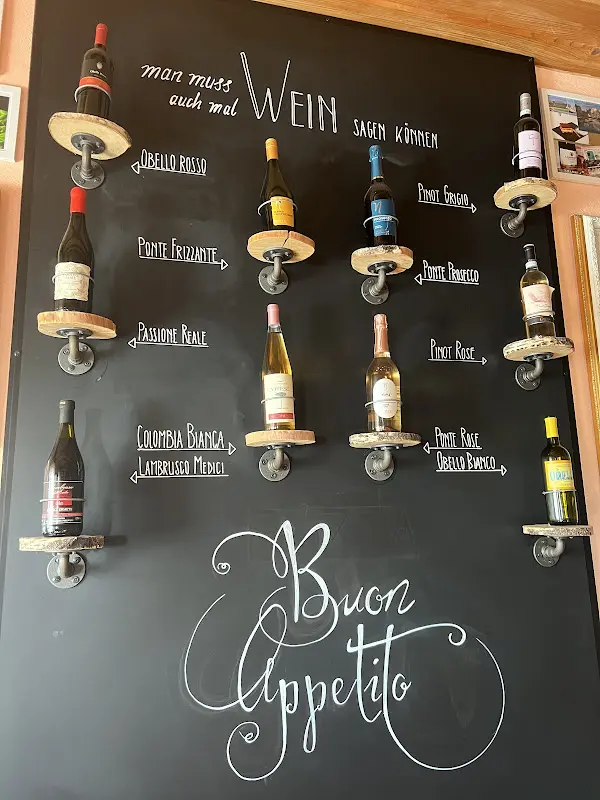 man muss
auch mal
WEIN
SAGEN KÖNNEN
OBELLO ROSSO
PINOT GRIGIO
PONTE FRIZZANTE
PONTE PROSECCO
PASSIONE REALE
PINOT ROSE
COLOMBIA BIANCA
LAMBRUSCO MEDICI
PONTE ROSE
OBELLO BIANCO
Buon
Appetito